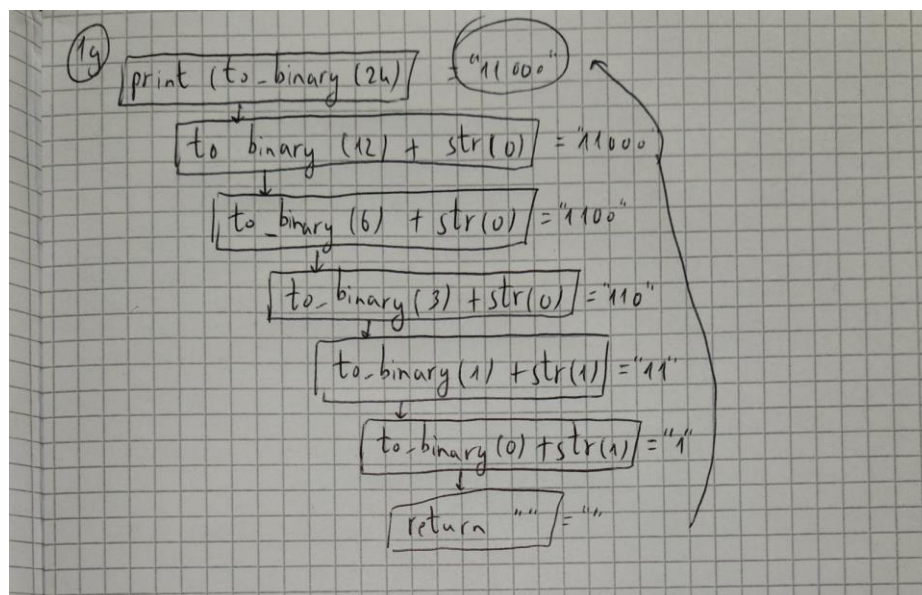 1g
print (to_binary (24) = "11000"
to binary (12) + str(0) = "11000"
to_binary (6) + str(0) = "1100"
to_binary (3) + str(0) = "110"
to_binary (1) + str(1) = "11"
to_binary (0) + str(1) = "1"
return "" = ""